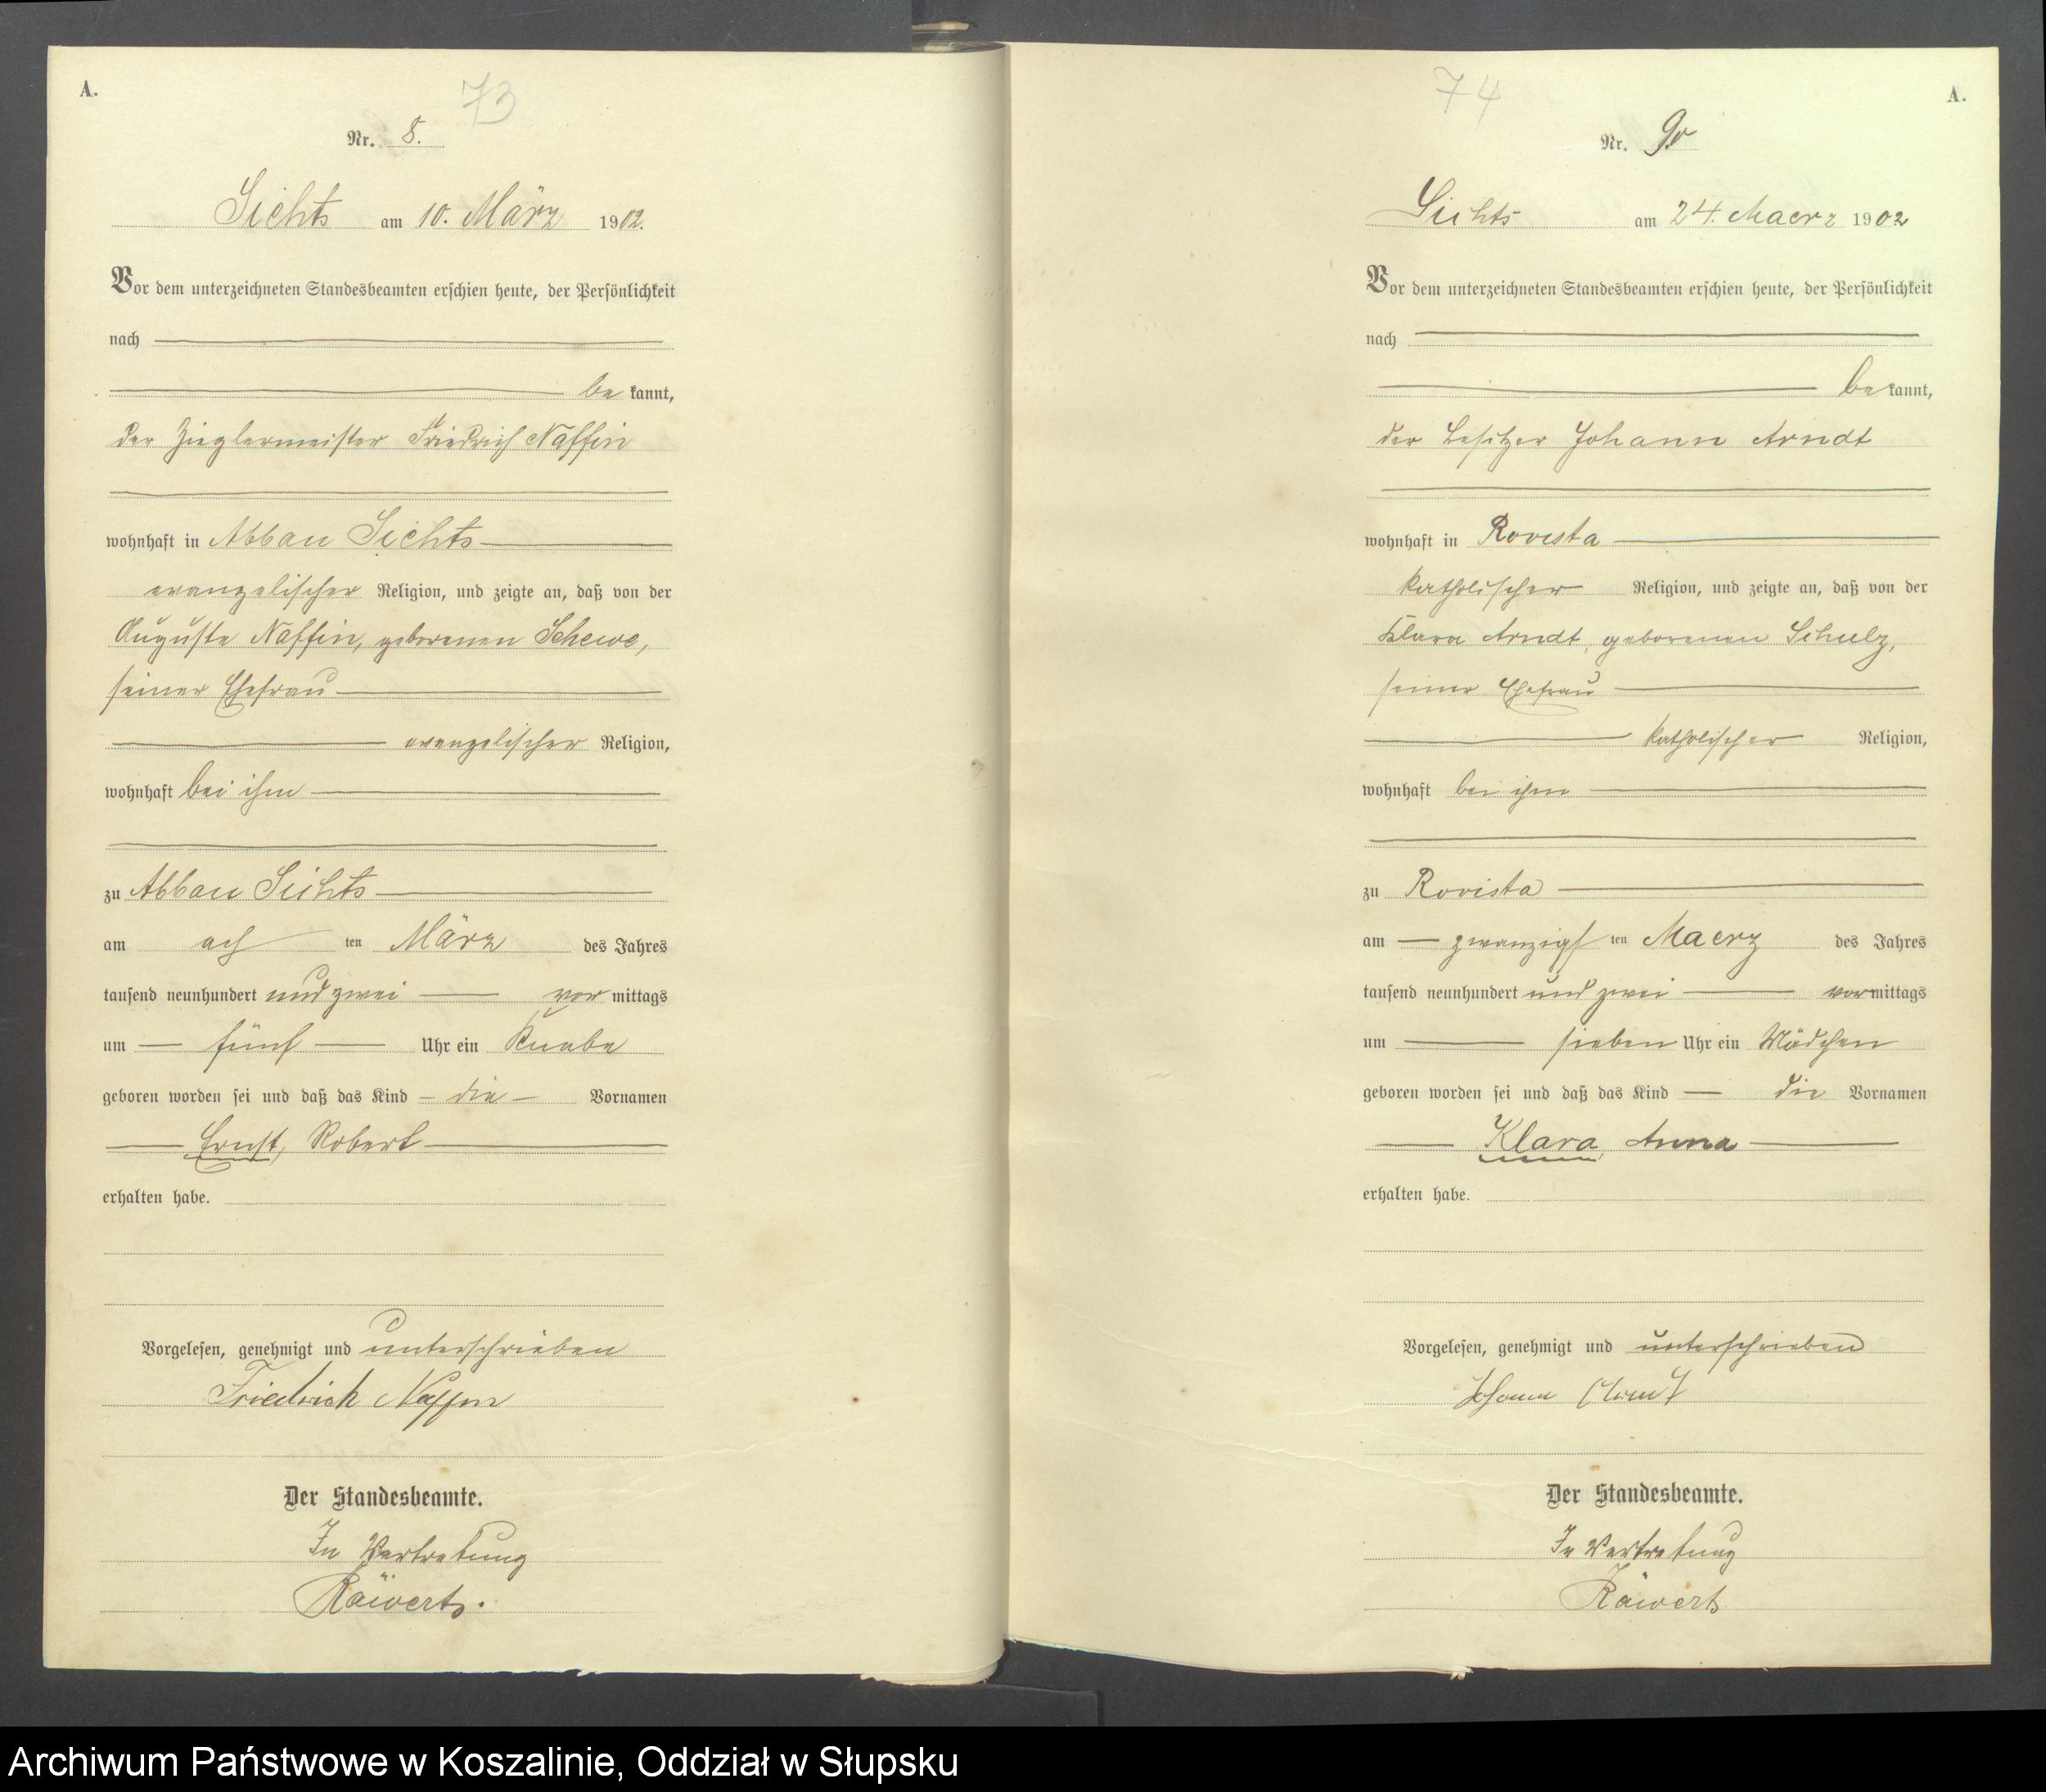 A.
73
Nr. 8.
Sichts am 10. März 1902.
Vor dem unterzeichneten Standesbeamten erschien heute, der Persönlichkeit
nach
be kannt,
der Zieglermeister Friedrich Naffin
wohnhaft in Abbau Sichts
evangelischer Religion, und zeigte an, daß von der
Auguste Naffin, geborenen Schewe,
seiner Ehefrau
evangelischer Religion,
wohnhaft bei ihm
zu Abbau Sichts
am ach ten März des Jahres
tausend neunhundert und zwei vor mittags
um fünf Uhr ein Knabe
geboren worden sei und daß das Kind die Vornamen
Ernst, Robert
erhalten habe.
Vorgelesen, genehmigt und unterschrieben
Friedrich Naffin
Der Standesbeamte.
In Vertretung
Räwerts.
A.
74
Nr. 9.
Sichts am 24. Maerz 1902
Vor dem unterzeichneten Standesbeamten erschien heute, der Persönlichkeit
nach
be kannt,
der Besitzer Johann Arndt
wohnhaft in Rovista
katholischer Religion, und zeigte an, daß von der
Klara Arndt, geborenen Schulz,
seiner Ehefrau
katholischer Religion,
wohnhaft bei ihm
zu Rovista
am zwanzigs ten Maerz des Jahres
tausend neunhundert und zwei vor mittags
um sieben Uhr ein Mädchen
geboren worden sei und daß das Kind die Vornamen
Klara, Anna
erhalten habe.
Vorgelesen, genehmigt und unterschrieben
Johann Arndt
Der Standesbeamte.
In Vertretung
Räwerts
Archiwum Państwowe w Koszalinie, Oddział w Słupsku